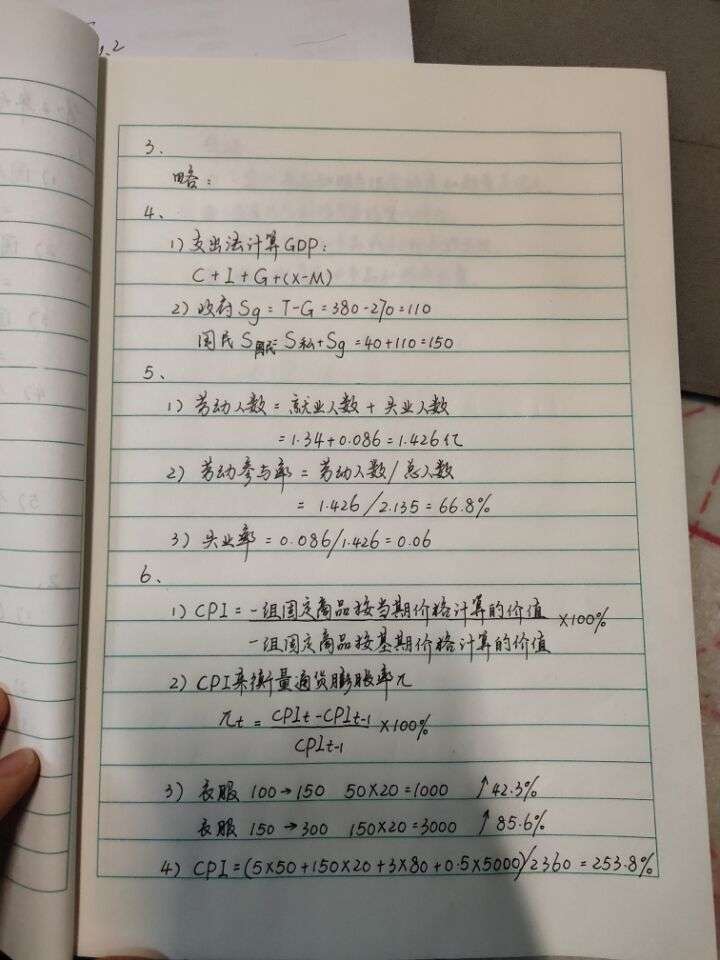 3、
略：
4、
1）支出法计算GDP：
C+I+G+(X-M)
2）政府Sg=T-G=380-270=110
国民S国民=S私+Sg=40+110=150
5、
1）劳动人数=就业人数+失业人数
=1.34+0.086=1.426亿
2）劳动参与率=劳动人数/总人数
=1.426/2.135=66.8%
3）失业率=0.086/1.426=0.06
6、
1）CPI=一组固定商品按当期价格计算的价值 ×100%
一组固定商品按基期价格计算的价值
2）CPI来衡量通货膨胀率π
πt=CPIt-CPIt-1 ×100%
CPIt-1
3）衣服 100→150 50×20=1000 ↑42.3%
衣服 150→300 150×20=3000 ↑85.6%
4）CPI=(5×50+150×20+3×80+0.5×5000)/2360=253.8%